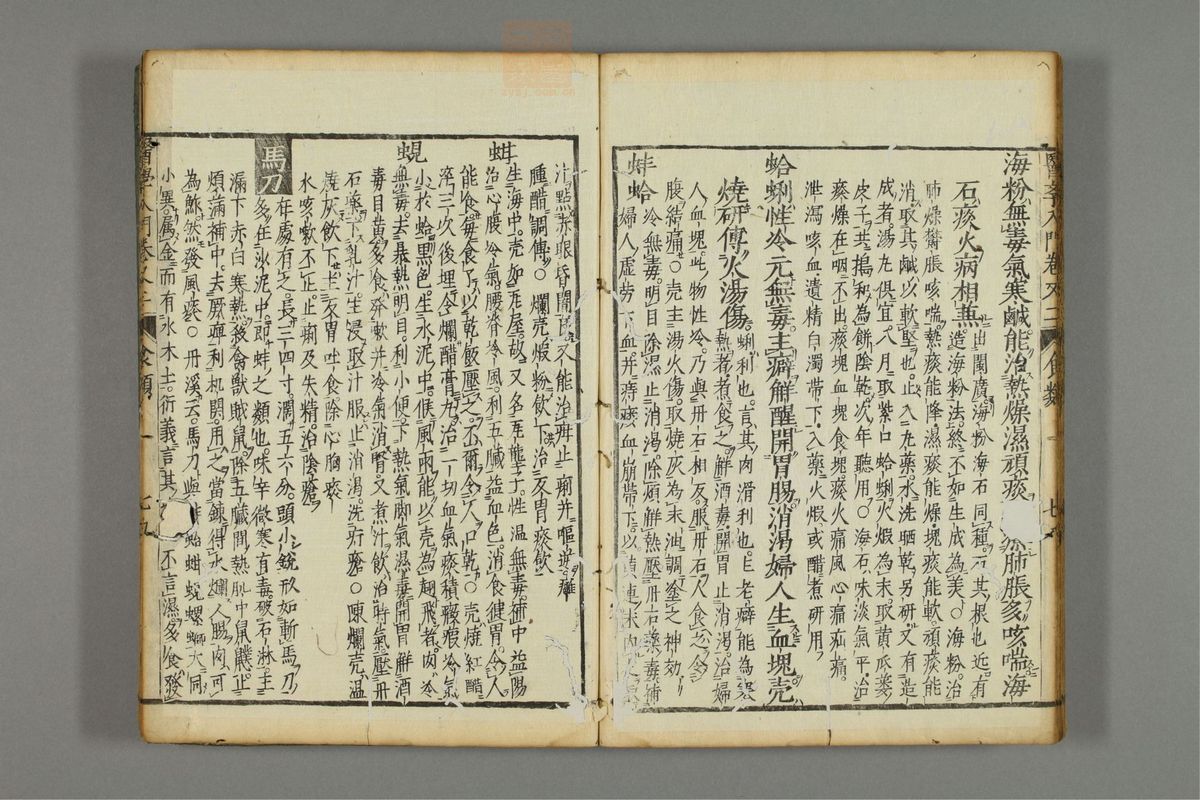 海粉無毒氣寒鹹能治熱燥濕頑痰肺脹亥咳喘海
石痰火病相兼
出閩廣海粉海石同種石其根也近有
造海粉法終不如生成為美○海粉治
肺燥鬱脹咳喘熱痰能降濕痰能燥塊痰能軟頑痰能
消取其鹹以軟堅也止入丸藥水洗晒乾另研又有造
成者湯丸俱宜八月取紫口蛤蜊火煅為末取黃瓜蔞
皮子共搗和為餅陰乾次年聽用○海石味淡氣平治
痰燥在咽不出痰塊血塊食塊痰火痛痰風心痛疝痛
泄瀉咳血遺精白濁帶下入藥火煅或醋煮研用
蛤蜊性冷元無毒主癖解酲開胃腸消渴婦人生血塊壳
燒研傅火湯傷
蜊利也言其肉滑利也主老癖能為寒
熱者煮食之解酒毒開胃止消渴治婦
人血塊此物性冷乃與丹石相反服丹石人食之令
腹結痛○壳主湯火傷取燒灰為末油調塗之神効
蚌蛤
冷無毒明目除濕止消渴除煩解熱壓丹石藥毒補
婦人虛勞下血并痔瘻血崩帶下以黃連末內之取
汁點赤眼昏闇良又能治疳止痢并嘔逆癰
腫醋調傅○爛壳煅粉飲下治反胃痰飲
蚶
生海中壳如瓦屋故又名瓦壟子性温無毒補中益陽
治心腹冷氣腰脊冷風利五臟益血色消食健胃令人
能食每食了以乾飯壓之不爾令人口乾○壳燒紅醋
淬三次後埋令爛醋膏丸治一切血氣痰積癥瘕冷氣
蜆
小於蛤黑色生水泥中候風雨能以壳為翅飛者肉冷
無毒去暴熱明目利小便下熱氣脚氣濕毒開胃解酒
毒目黄多食發嗽并冷氣消腎又煮汁飲治時氣壓丹
石藥下乳汁生浸取汁服止消渴洗疔瘡○陳爛壳温
燒灰飲下主反胃吐食除心胸痰
水咳嗽不止止痢及失精治陰瘡
馬刀
在處有之長三四寸濶五六分頭小銳形如斬馬刀
多在沙泥中即蚌之類也味辛微寒有毒破石淋主
漏下赤白寒熱殺禽獸賊鼠除五臟間熱肌中鼠䑕止
煩滿補中去厥痺利机関用之當鍊得水爛人腸肉可
為鮓然發風痰○丹溪云馬刀與蛤蚌蚶蜆螺螄大同
小異属金而有水木土衍義言其冷而不言濕多食發
醫學入門卷又二
食類
七九